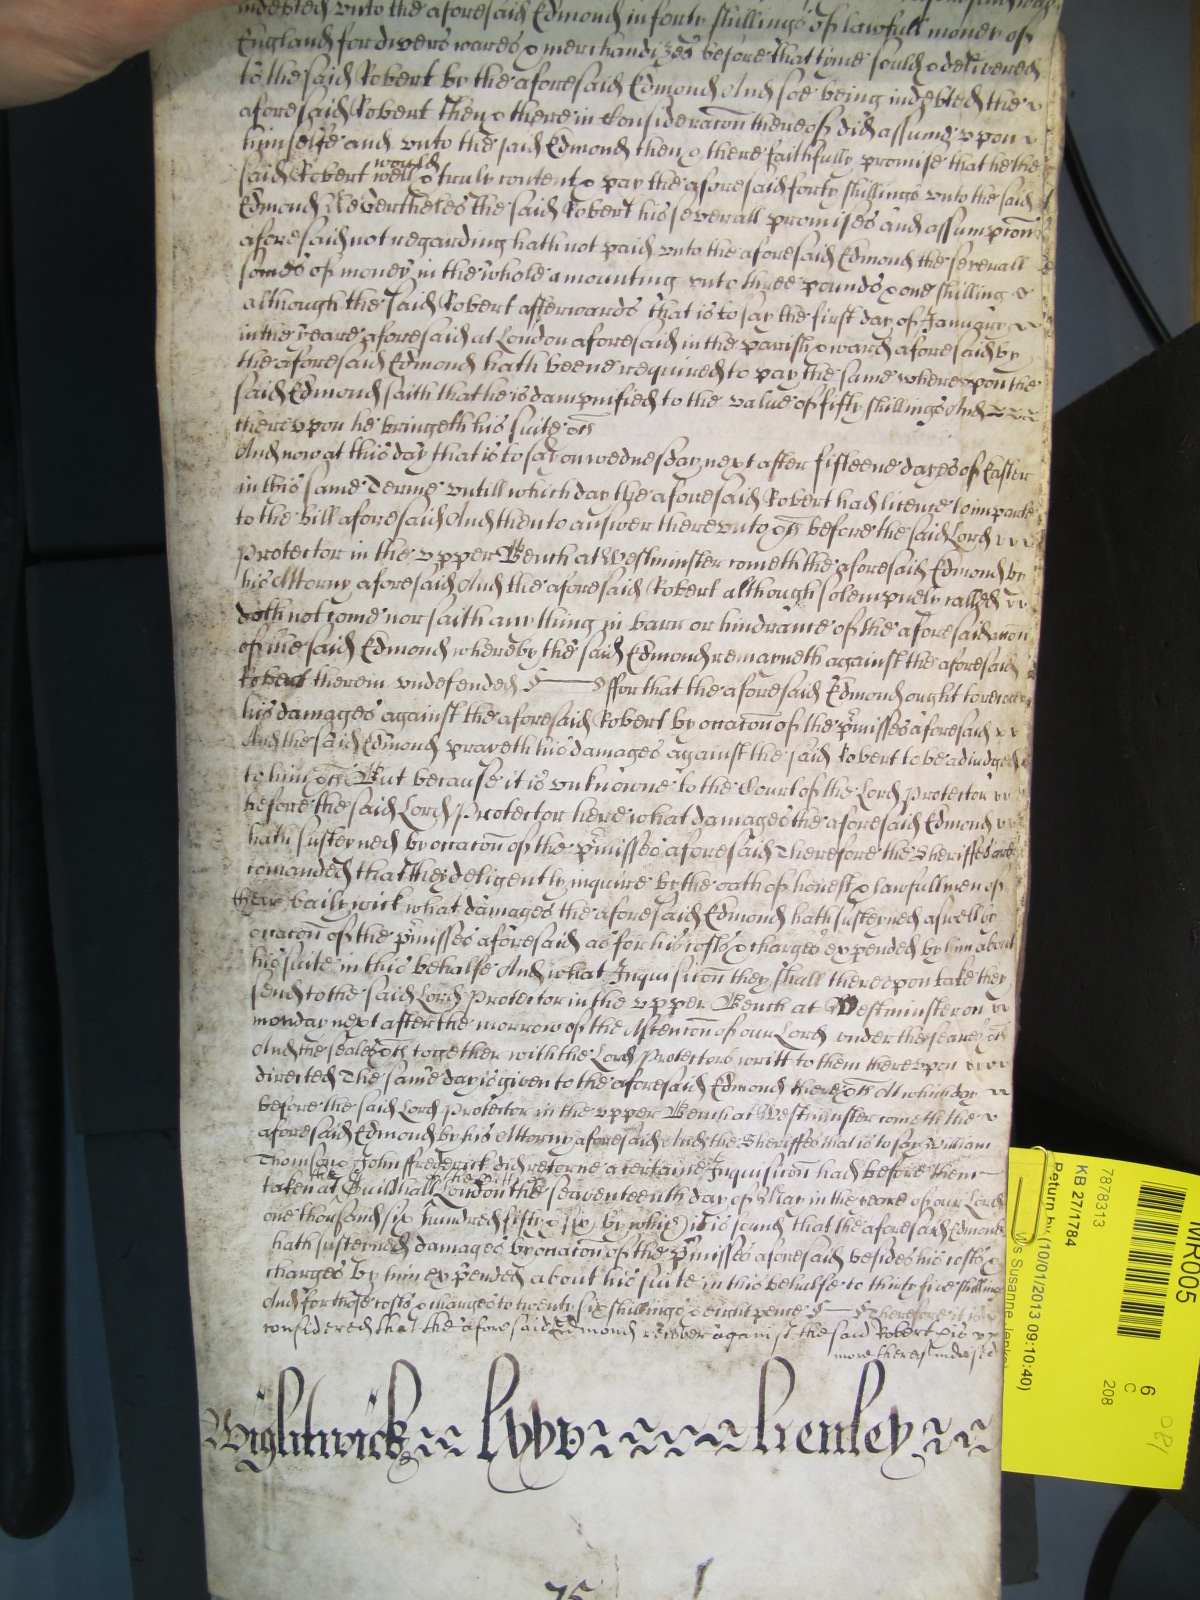 indebted unto the aforesaid Edmond in forty shillings of lawfull money of
England for divers wares & merchandizes before that tyme sould & delivered
to the said Robert by the aforesaid Edmond And soe being indebted the
aforesaid Robert then & there in Consideracon thereof did assume upon
himselfe and unto the said Edmond then & there faithfully promise that he the
would
said Robert well & truly content & pay the aforesaid forty shillings unto the said
Edmond Nevertheles the said Robert his severall promises and assumpcons
aforesaid not regarding hath not paid unto the aforesaid Edmond the severall
somes of money in the whole amounting unto three pounds & one shilling
although the said Robert afterwards that is to say the first day of January
in the yeare aforesaid at London aforesaid in the parish & ward aforesaid by
the aforesaid Edmond hath beene required to pay the same whereupon the
said Edmond saith that he is dampnified to the value of fifty shillings And
thereupon he bringeth his suite &c
And now at this day that is to say on wednesday next after fifteene dayes of Easter
in this same Terme untill which day the aforesaid Robert had licence to imparle
to the bill aforesaid And then to answer thereunto &c before the said Lord
Protector in the upper Bench at Westminster cometh the aforesaid Edmond by
his Attorny aforesaid And the aforesaid Robert although solempnely called
doth not come nor saith any thing in barr or hindrance of the aforesaid accon
of the said Edmond whereby the said Edmond remayneth against the aforesaid
Robert therein undefended ffor that the aforesaid Edmond ought to recover
his damages against the aforesaid Robert by occacon of the pmisses aforesaid
And the said Edmond prayeth his damages against the said Robert to be adiudged
to him &c But because it is unknowne to the Court of the Lord Protector
before the said Lord Protector here what damages the aforesaid Edmond
hath susteyned by occacon of the pmisses aforesaid Therefore the Sheriffes are
comanded that they deligently inquire by the oath of honest & lawfull men of
their bailywick what damages the aforesaid Edmond hath susteyned aswell by
occacon of the pmisses aforesaid as for his costs & charges expended by him about
his suite in this behalfe And what Inquisicon they shall thereupon take they
send to the said Lord Protector in the upper Bench at Westminster on
monday next after the morrow of the Ascencon of our Lord under the seale &c
And the seales &c together with the Lord Protectors writt to them thereupon
directed The same day is given to the aforesaid Edmond there &c At which day
before the said Lord Protector in the upper Bench at Westminster cometh the
aforesaid Edmond by his Attorny aforesaid And the Sheriffes that is to say William
Thomson & John ffrederick did returne a certaine Inquisicon had before them
taken at Guildhall London the seaventeenth day of May in the yeare of our Lord
one thousand six hundred fifty & six by which it is found that the aforesaid Edmond
hath susteyned damages by occacon of the pmisses aforesaid besides his costs &
charges by him expended about his suite in this behalfe to thirty five shillings
And for those costs & charges to twenty six shillings & eight pence Therefore it is
considered that the aforesaid Edmond recover against the said Robert his
more thereof indorsed
Wightwick Lyvv henley
75
MR005
6
C
208
7878313
KB 27/1784
Return by (10/01/2013 09:10:40)
Ms Susanne Jenks
180